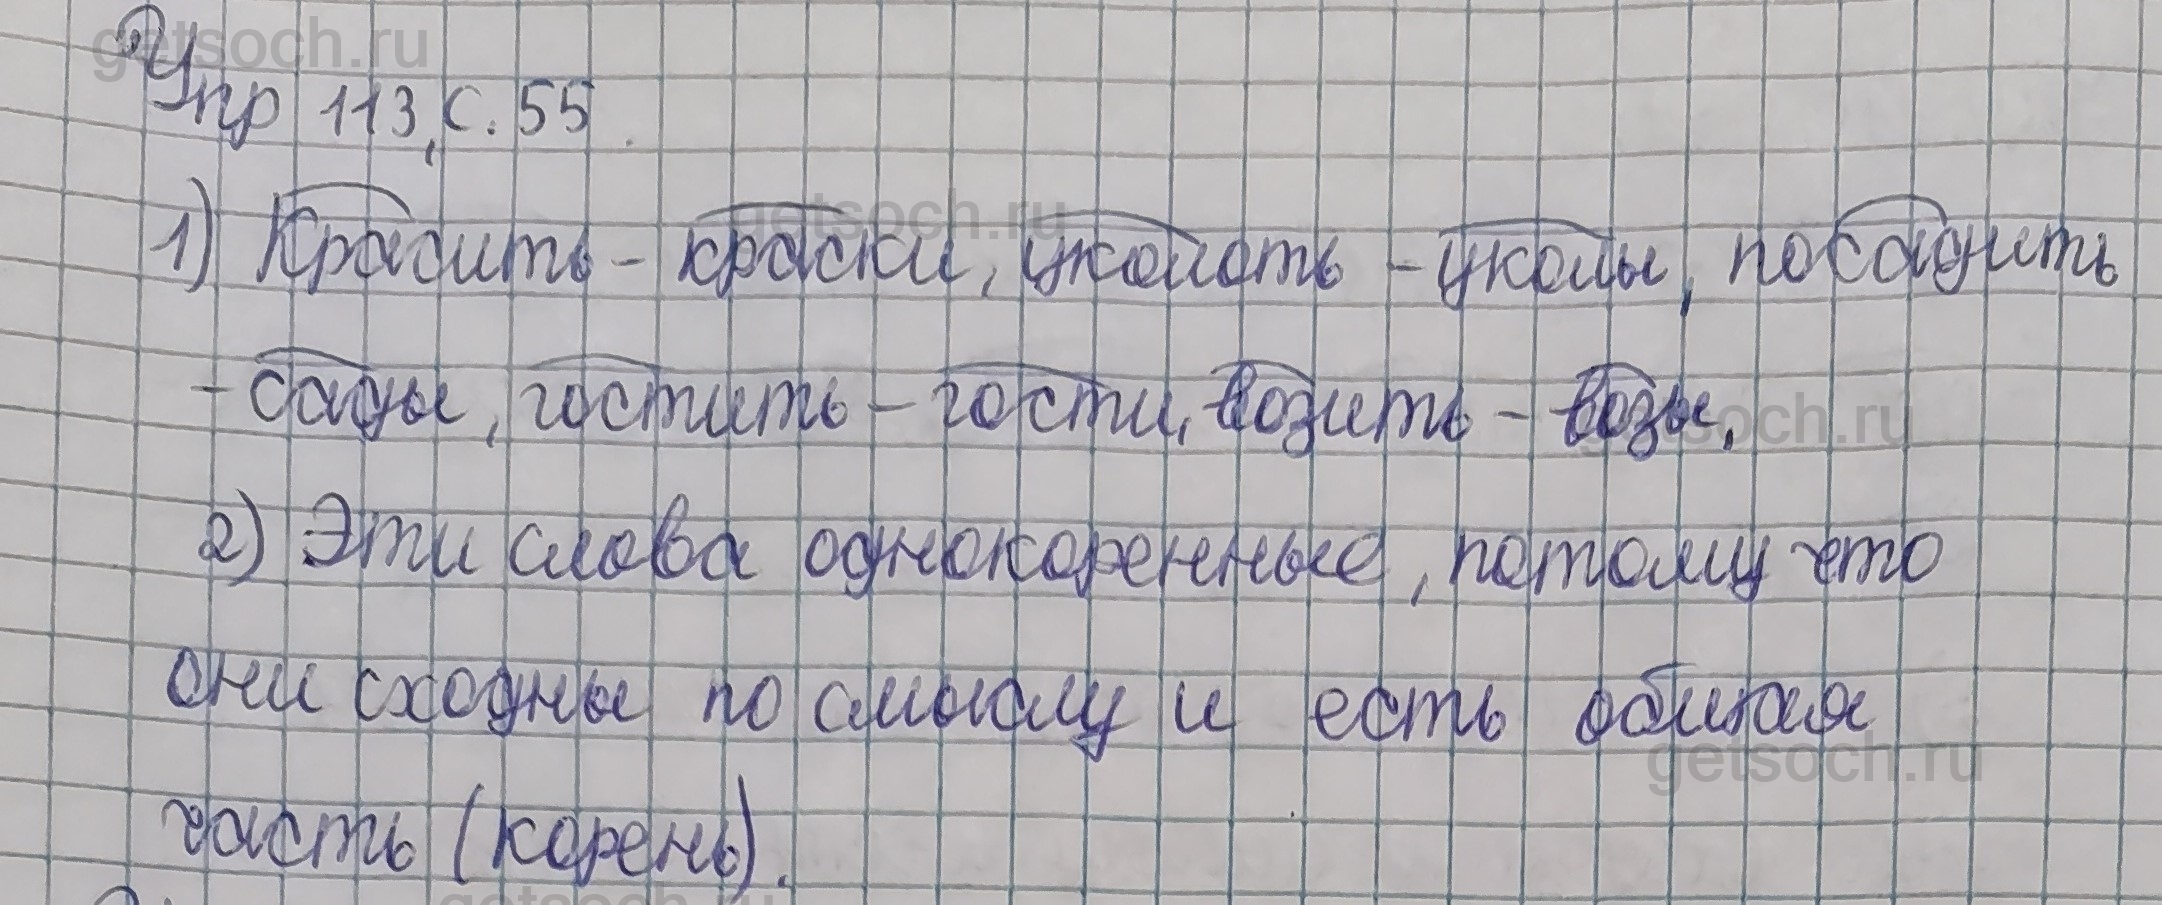 getsoch.ru
Упр 113, с. 55.
getsoch.ru
1) Красить - краски, уколоть - уколы, посадить
- сады, гостить - гости, возить - возы.
getsoch.ru
2) Эти слова однокоренные, потому что
они сходны по смыслу и есть общая
getsoch.ru
часть (корень).
getsoch.ru